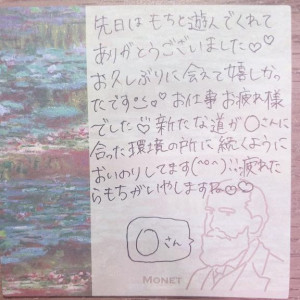 先日はもちと遊んでくれて
ありがとうございました♡♡
お久しぶりに会えて嬉しかっ
たです。お仕事お疲れ様
でした♡新たな道が〇さんに
合った環境の所に続くように
おいのりしてます(^o^)!!疲れた
らもちがいやします♡
〇さん
MONET